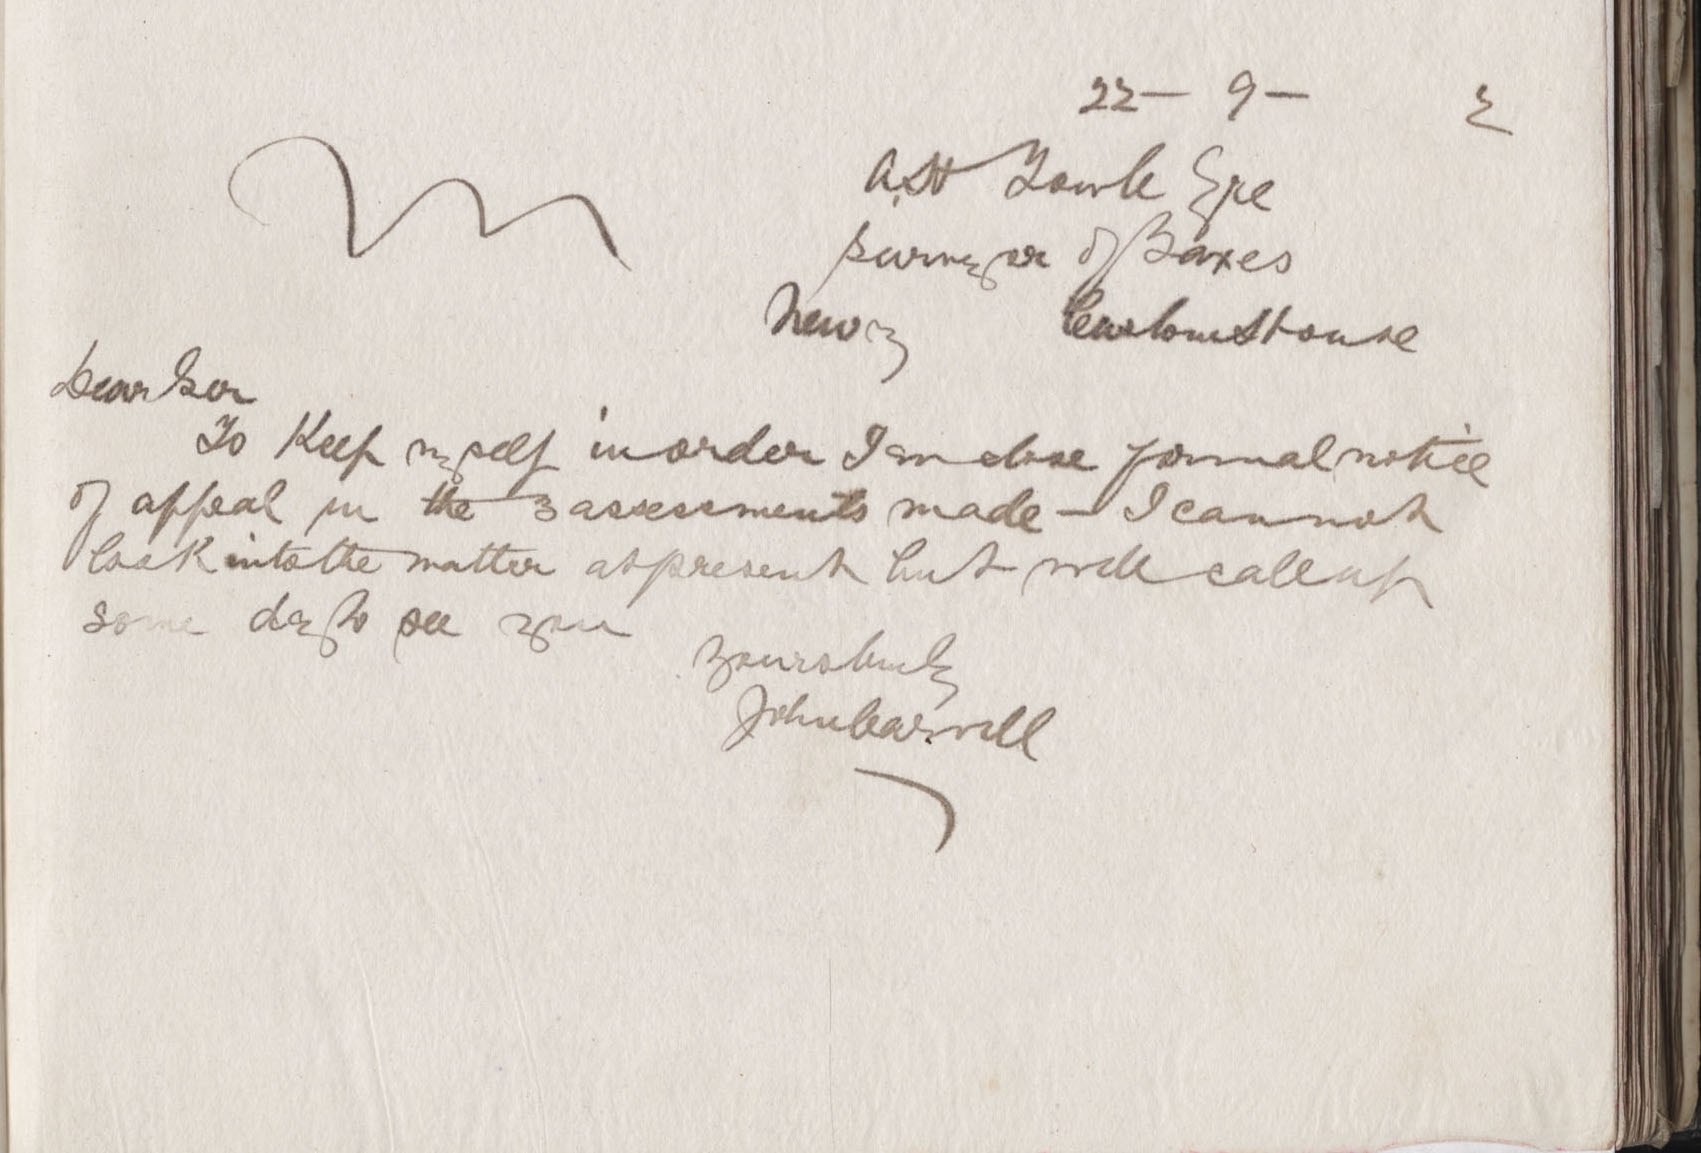 22 - 9 - 2
A.H Fowle Esqe
Surveyor of Taxes
Newry Customs House
Dear Sir
To Keep myself in order I enclose formal notice
of appeal in the 3 assessments made - I cannot
look into the matter at present but will call up
some day to see you
Yours truly
John Carvill